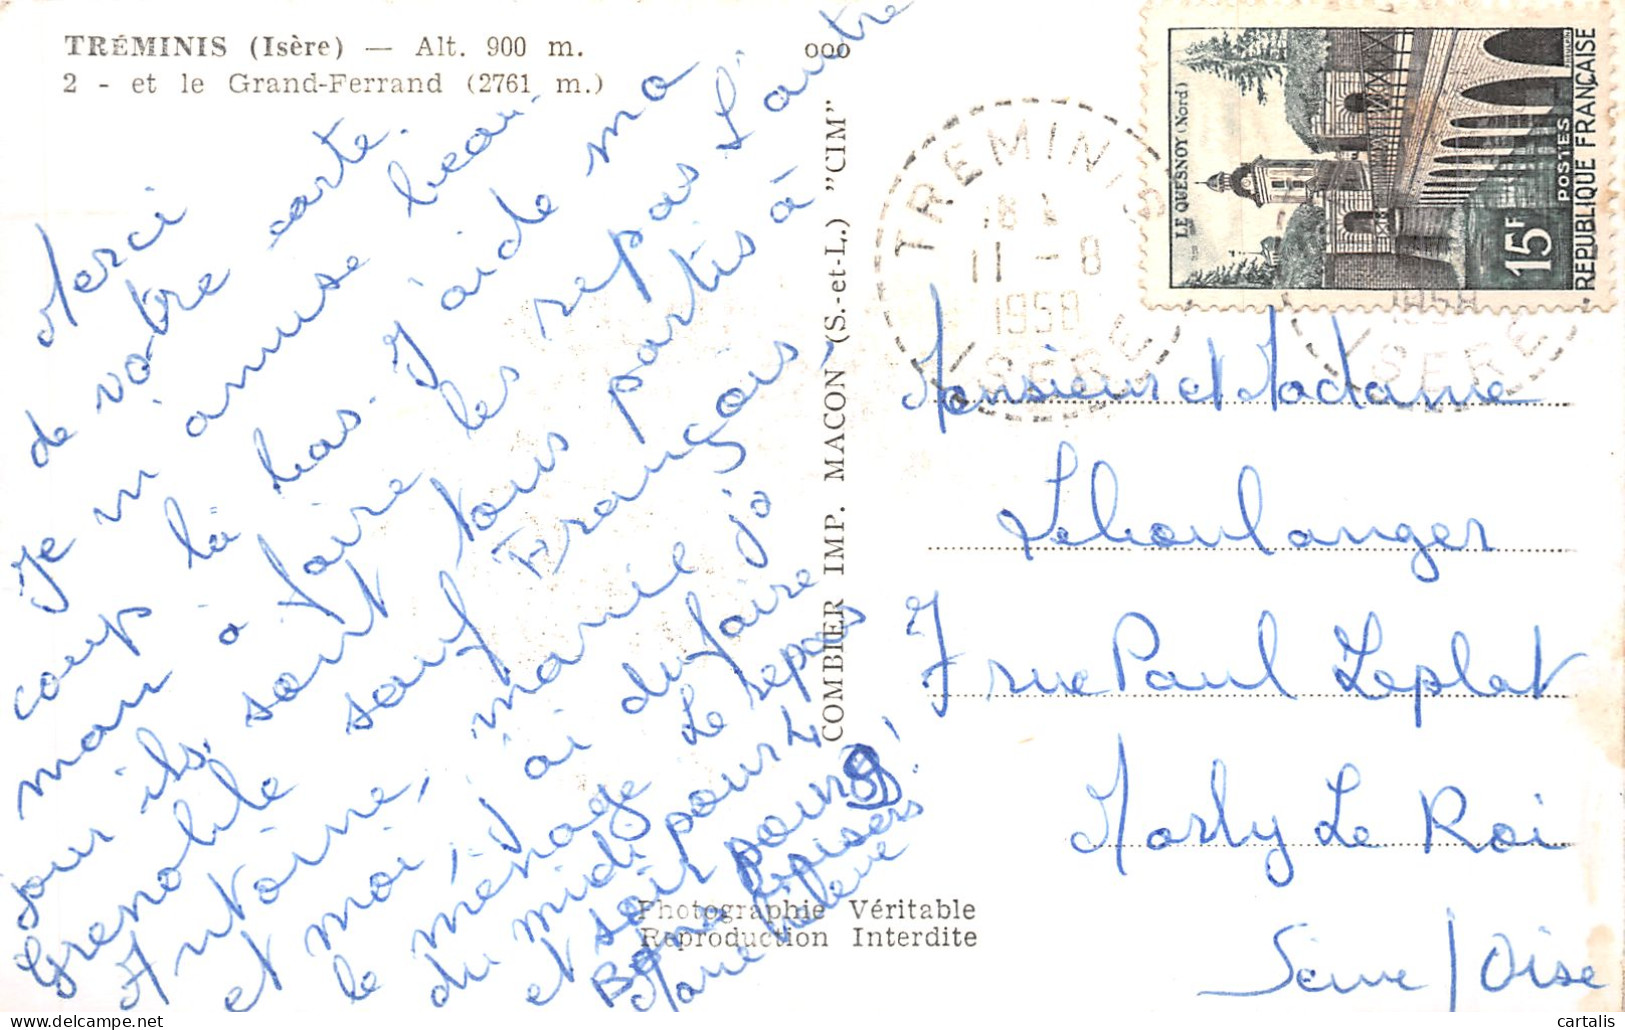 TRÉMINIS (Isère) — Alt. 900 m.
2 - et le Grand-Ferrand (2761 m.)
Merci
de votre carte.
Je m'amuse beau-
coup là bas. J'aide ma
man à faire les repas L'autre
jour ils sont tous partis à
Grenoble sauf François,
Antoine, marie jo
et moi, j'ai du faire
le ménage Le repas
du midi pour 4
et soir pour 9!
Bons Baisers
Marie Hélène
COMBIER IMP. MACON (S.-et-L.) "CIM"
ooo
Photographie Véritable
Reproduction Interdite
TREMINIS
18
11 - 8
1958
ISERE
1958
ISERE
LE QUESNOY (Nord)
15F
POSTES
REPUBLIQUE FRANÇAISE
Monsieur et Madame
Leboulanger
7 rue Paul Leplat
Marly Le Roi
Seine / Oise
cartalis